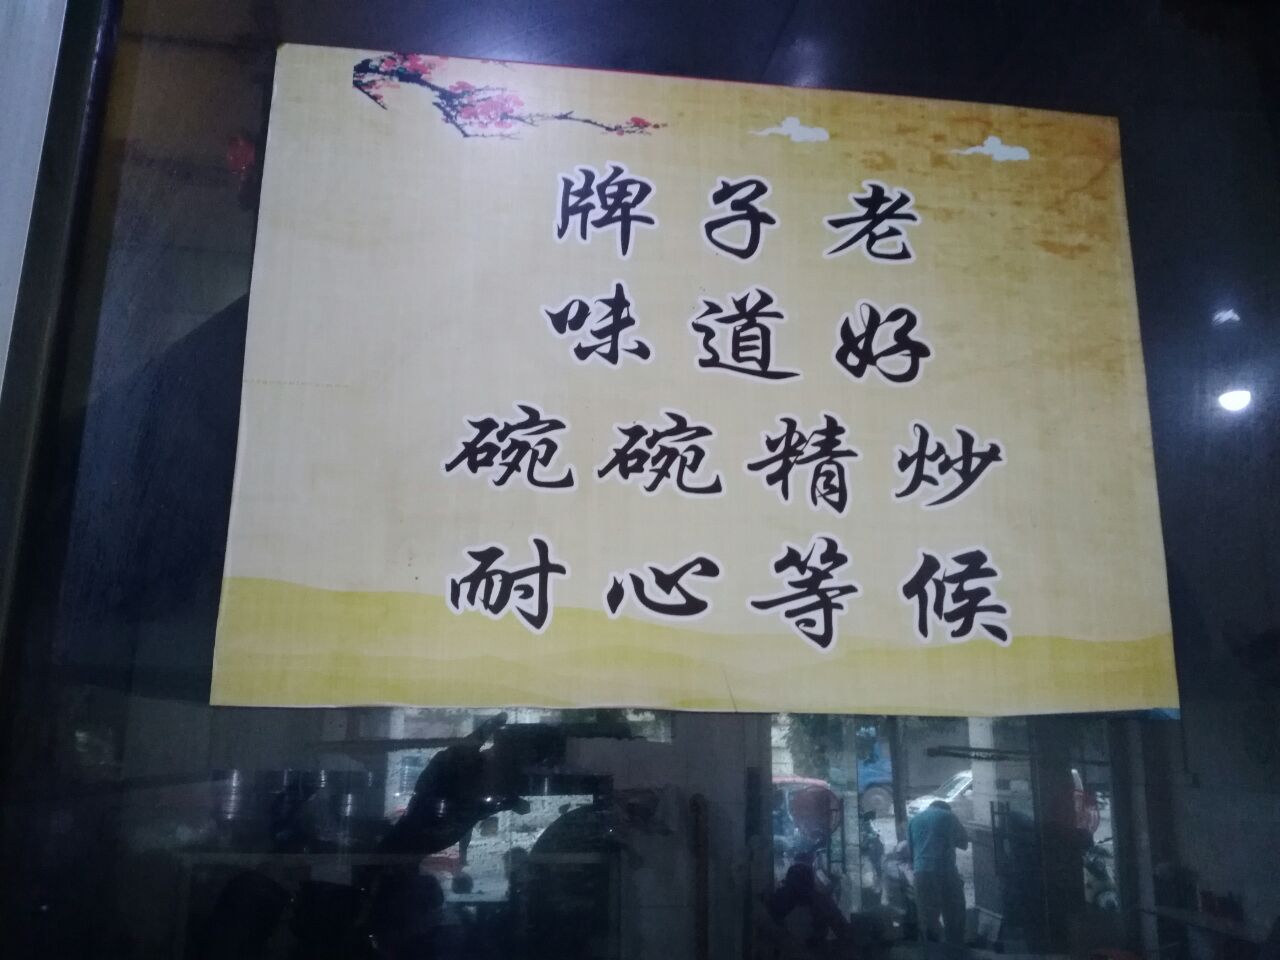 牌子老
味道好
碗碗精炒
耐心等候